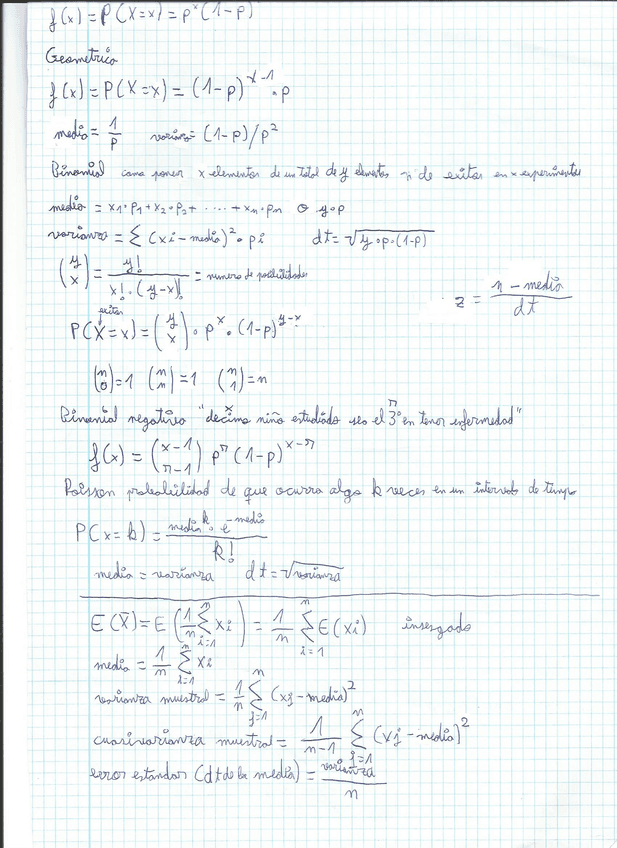 f(x) = P(X=x) = p^x (1-p)
Geometrica
f(x) = P(X=x) = (1-p)^(x-1) · p
media = 1/p varianza = (1-p)/p^2
Binomial como poner x elementos de un total de y elementos n de exitos en x experimentos
media = x1·p1 + x2·p2 + ..... + xn·pn o y·p
varianza = Σ (xi - media)^2 · pi dt = √(y·p·(1-p))
(y x) = y! / (x!·(y-x)!) = numero de posibilidades
z = (n - media) / dt
exitos
P(X=x) = (y x) · p^x · (1-p)^(y-x)
(n 0) = 1 (n n) = 1 (n 1) = n
x r
Binomial negativa "decimo niño estudiado sea el 3º en tener enfermedad"
f(x) = (x-1 r-1) p^r (1-p)^(x-r)
Poisson probabilidad de que ocurra algo k veces en un intervalo de tiempo
P(x=k) = media^k · e^(-media) / k!
media = varianza dt = √varianza
E(X̄) = E(1/n Σ_{i=1}^{n} xi) = 1/n Σ_{i=1}^{n} E(xi) insesgado
media = 1/n Σ_{i=1}^{n} xi
varianza muestral = 1/n Σ_{j=1}^{n} (xj - media)^2
cuasivarianza muestral = 1/(n-1) Σ_{j=1}^{n} (xj - media)^2
error estandar (dt de la media) = varianza / n